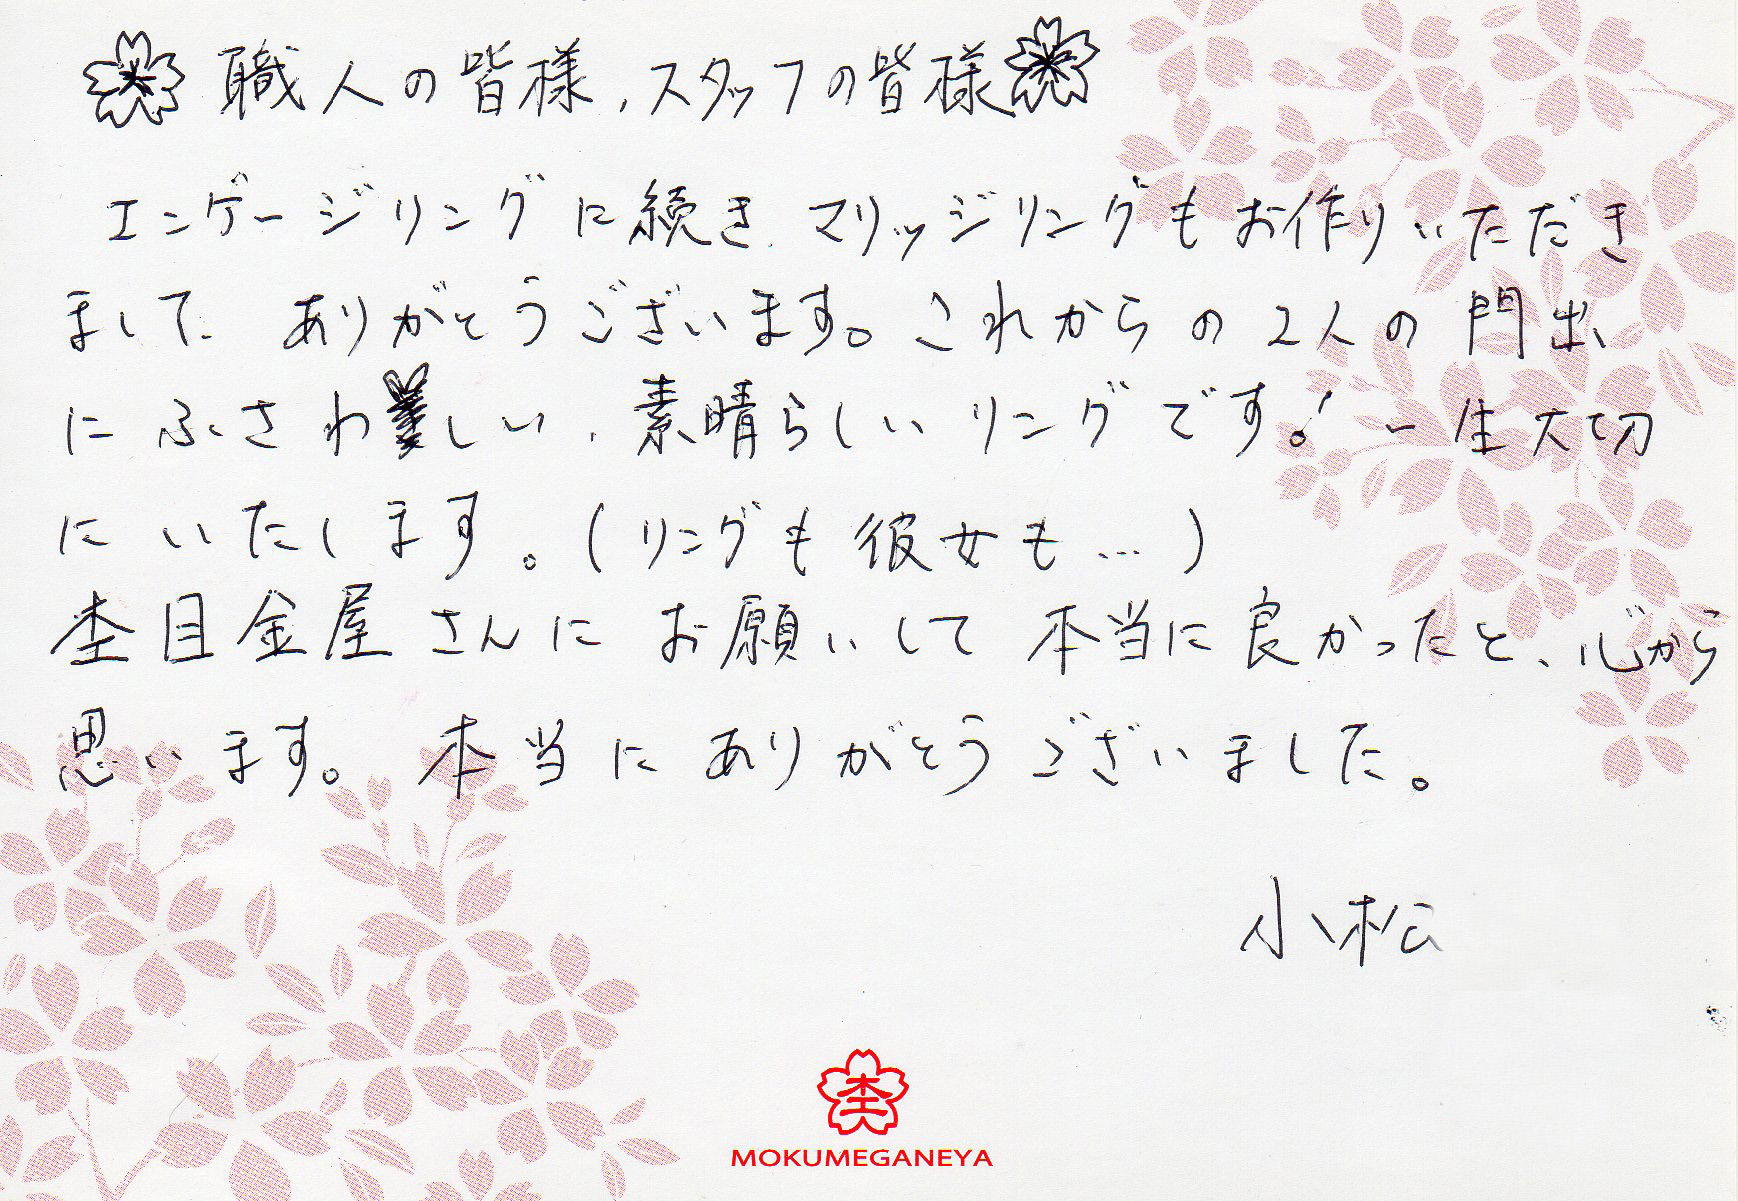 職人の皆様、スタッフの皆様
エンゲージリングに続き、マリッジリングもお作りいただき
まして、ありがとうございます。これからの2人の門出
にふさわしい、素晴らしいリングです!一生大切
にいたします。(リングも彼女も…)
杢目金屋さんにお願いして本当に良かったと、心から
思います。本当にありがとうございました。
小松
杢
MOKUMEGANEYA